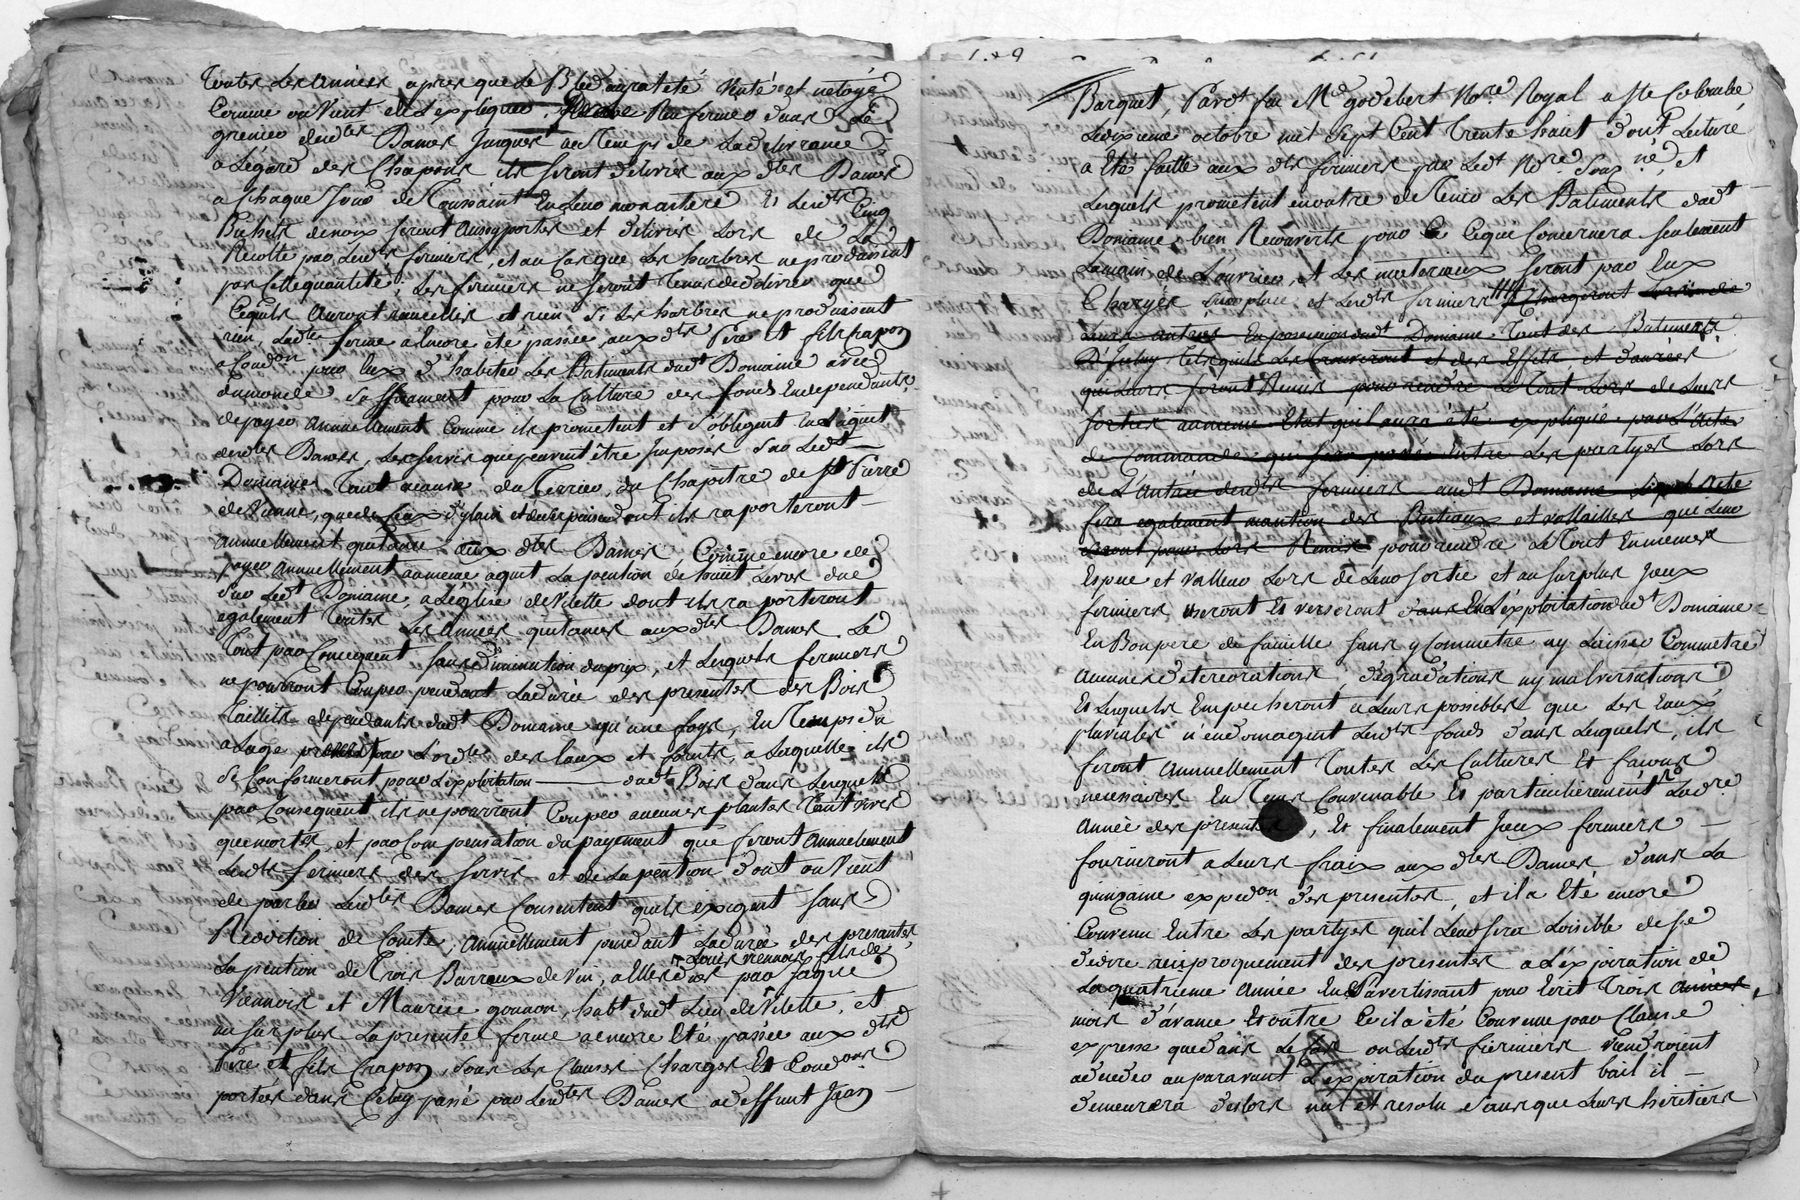 toutes les années apres que le Bled aurat eté Venté et netoyé
Comme on Vient de L'expliquer, Renfermer dans Le
grenier desd.tes Dames Jusques au Temps de La délivrance,
a Légard des Chapons ils seront délivrés aux d.tes Dames
a chaque Jour de Toussaint En Leur monastere Et Lesd.ts Cinq
Bichets de noix seront aussy portés et délivrés Lors de La
Récolte par Lesd.ts fermiers, et au Cas que Les harbres ne produisent
pas cette quantité, Les fermiers ne seront Tenus de délivrer que
Ce qu'ils auront et rien si Les harbres ne produisent
rien, Lad.te ferme a Encore été passée aux d.ts Pere et fils Crapon
a Cond.on pour Eux d'habiter Les Batiments dud.t Domaine avec
du monde suffisament pour La Culture des fonds En dépendants,
de payer annuellement Comme ils prometent et s'obligent En L'aquit
desd.tes Dames, Les servis que peuvent être Imposés sur Led.t
Domaine Tant a cause du Terrier du Chapitre de S.t Pierre
de Vienne, que de Ceux et dont ils raporteront
annuellement quitance aux d.tes Dames Comme encore de
payer annuellement au meme aquit La pention de Livres due
sur Led.t Domaine, a L'église de Vilette dont ils raporteront
également Toutes Les Années quitances aux d.tes Dames Le
Tout par Consequent sans diminution du prix, et Lesquels fermiers
ne pourront Couper pendant La durée des presentes des Bois
Taillits dependants dud.t Domaine qu'une foys, En Temps du
a L'age par L'ord.ce des Eaux et forêts, a Laquelle ils
se Conformeront pour L'exploitation dud.t Bois dans Lequel
par Conséquent ils ne pourront Couper aucunes plantes Tant vives
que mortes, et par Compensation du payement que feront annuelement
Lesd.ts fermiers des servis et de La pention dont on Vient
de parler Lesd.tes Dames Consentent qu'ils exigent sans
Redition de Comte, annuellement pendant La durée des presantes
Louis Viennois fils de
La pention de Trois Barreaux de Vin, a Elles due par Jaque
Viennois et Maurise gonnon, hab.t dud.t Lieu de Vilette, et
au surplus La presente ferme a encore Eté passée aux d.ts
Pere et fils Crapon, sous Les Clauses Charges Et Cond.ons
portées dans Celuy passé par Lesd.tes Dames a deffunt Jean
Barquet, Pard.t feu M.e godebert No.re Royal a Ste Colombe
Le dixieme octobre mil sept Cent Trente huit dont Lecture
a Eté faitte aux d.ts fermiers par Led.t No.re Sous.né, Et
Lesquels prometent en outre de Tenir Les Batiments dud.t
Domaine bien Recouverts pour Ce que Concernera seulement
La main de L'ouvrier, Et Les materiaux seront par Eux
Chargés sur place et Lesd.ts fermiers se Chargeront Lors de
Leurs entrées En possession dud.t Domaine Tant des Batiments
D'Iceluy tels qu'ils Les Trouveront et des Effets et danrées
qui Leurs seront Remis pour rendre Le Tout Lors de Leurs
sorties au meme Etat qu'il aura été expliqué par L'acte
de Commande qui sera passé Entre Les partyes Lors
de L'entrée desd.ts fermiers aud.t Domaine Lequel Acte
fera egalement mantion des Bestiaux et vollailles que Leur
seront pour Lors Remis pour rendre Le Tout En memes
Espece et Valleur Lors de Leur sortie et au surplus Iceux
fermiers useront Et verseront dans L'exploitation dud.t Domaine
En Bon pere de famille sans y Commetre ny Laisser Commetre
aucunes détériorations, dégradations ny malversations
Et Lesquels Empecheront a Leurs possibles que Les Eaux
pluviales n'endomagent Lesd.ts fonds dans Lesquels, ils
feront annuellement Toutes Les Cultures Et façons
necessaires En Tems Convenable Et particulierement La d.re
année des presentes, Et finalement Iceux fermiers
fourniront a Leurs fraix aux d.tes Dames dans La
quinzaine exped.on des presentes, et il a Eté encore
Convenu Entre Les partyes qu'il Leur sera Loisible de se
dédire réciproquement des presentes a L'expiration de
La quatrieme année En s'avertissant par Ecrit Trois années
mois d'avance Et outre Ce il a été Convenu par Clause
expresse que dans Le Cas ou Lesd.ts fermiers Viendroient
a déceder auparavant L'expiration du present bail il
demeurera deslors nul et resolu sans que Leurs héritiers